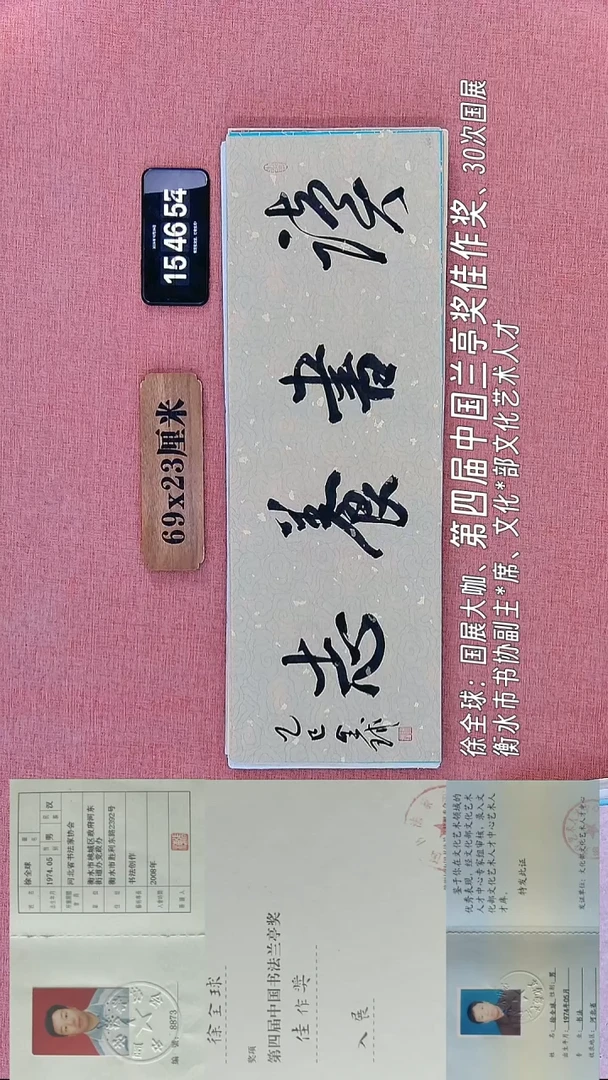 15 46 54
69x23厘米
读书养志
乙巳 全球
徐全球：国展大咖、第四届中国兰亭奖佳作奖、30次国展
衡水市书协副主*席、文化*部文化艺术人才
徐全球
1974.05
男
汉
河北省书法家协会
衡水市桃城区政府河东
街道办党政办
衡水市胜利东路2202号
书法创作
2008年
编 号：8873
徐全球
奖项
第四届中国书法兰亭奖
佳作奖
入展
鉴于你在文化艺术领域的
优秀表现，经文化部文化艺术
人才中心专家组审核，录入文
化部文化艺术人才中心艺术人
才库。
特发此证
发证单位：文化部文化艺术人才中心
姓 名：徐全球 性别：男
出生年月：1974年05月
专 业：书法